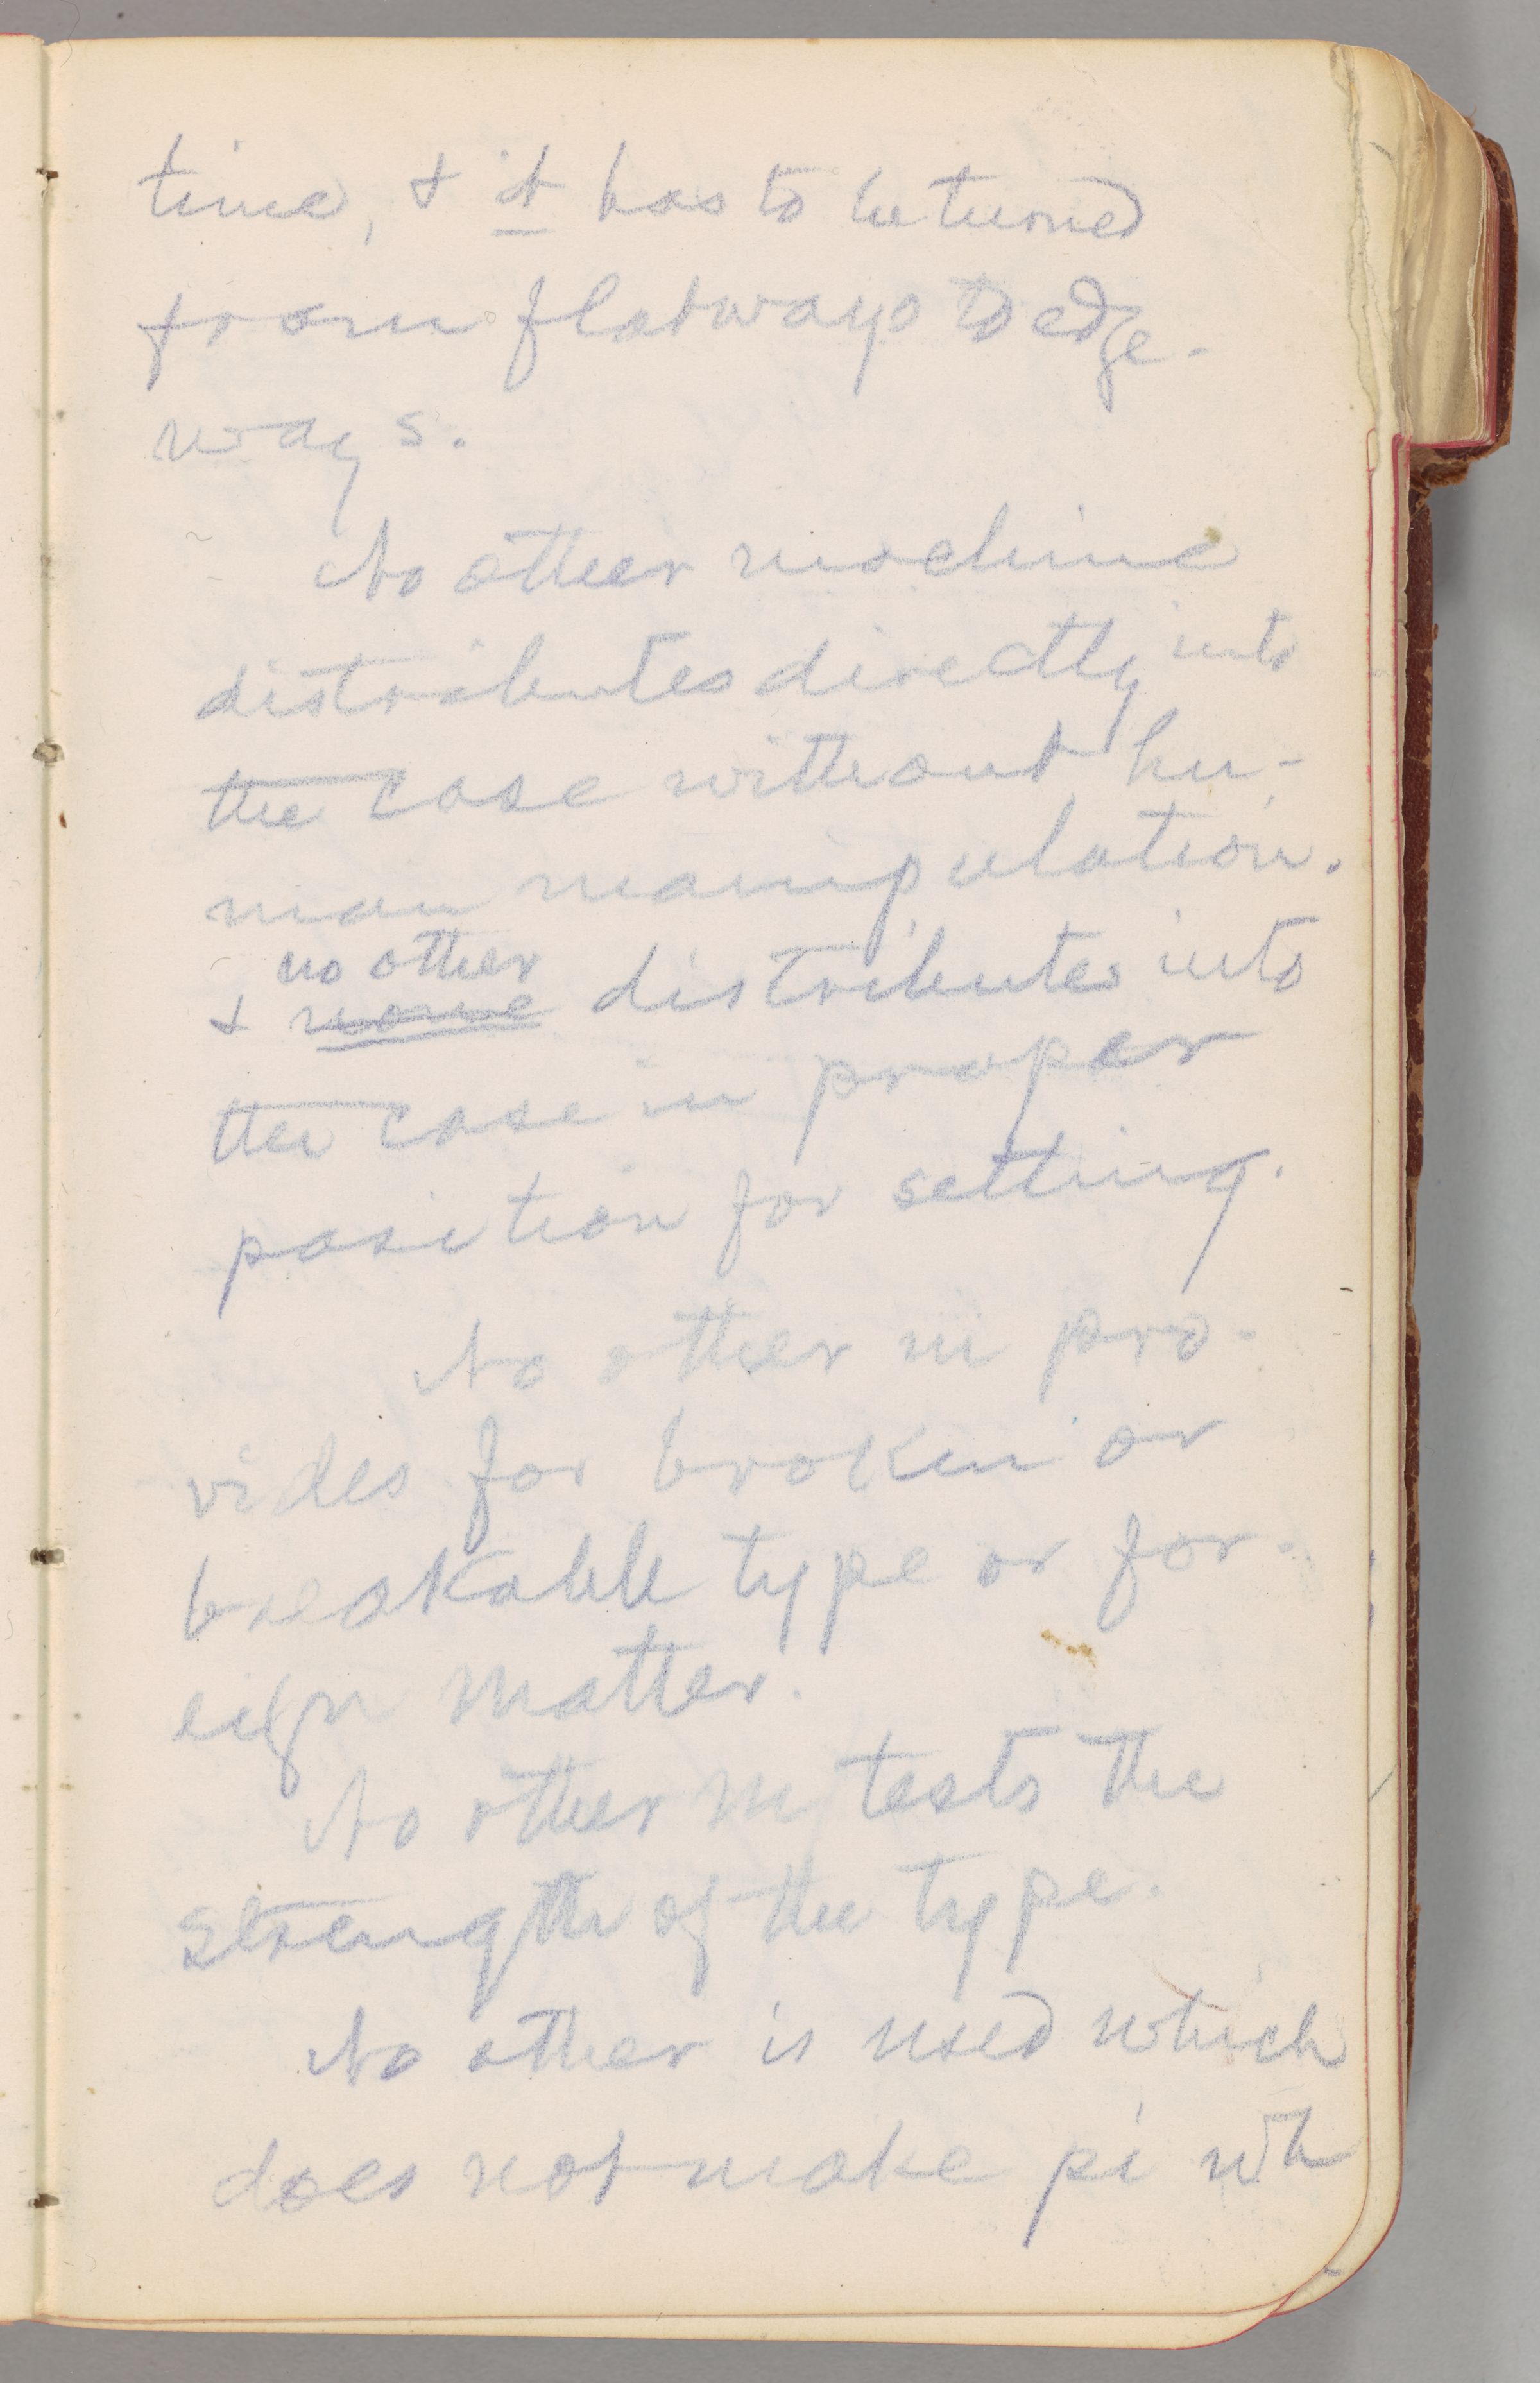 time, & it has to be turned
from flatways to edge-
ways.
No other machine
distributes directly into
the case without hu-
man manipulation.
no other
& none distributes into
the case in proper
position for setting.
No other m pro-
vides for broken or
breakable type or for-
eign matter.
No other m tests the
strength of the type.
No other is used which
does not make pi wh